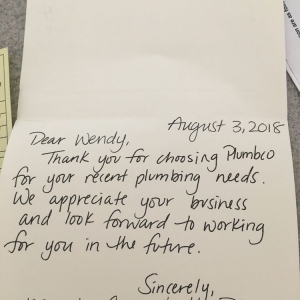 August 3, 2018
Dear Wendy,
Thank you for choosing Plumbco
for your recent plumbing needs.
We appreciate your business
and look forward to working
for you in the future.
Sincerely,